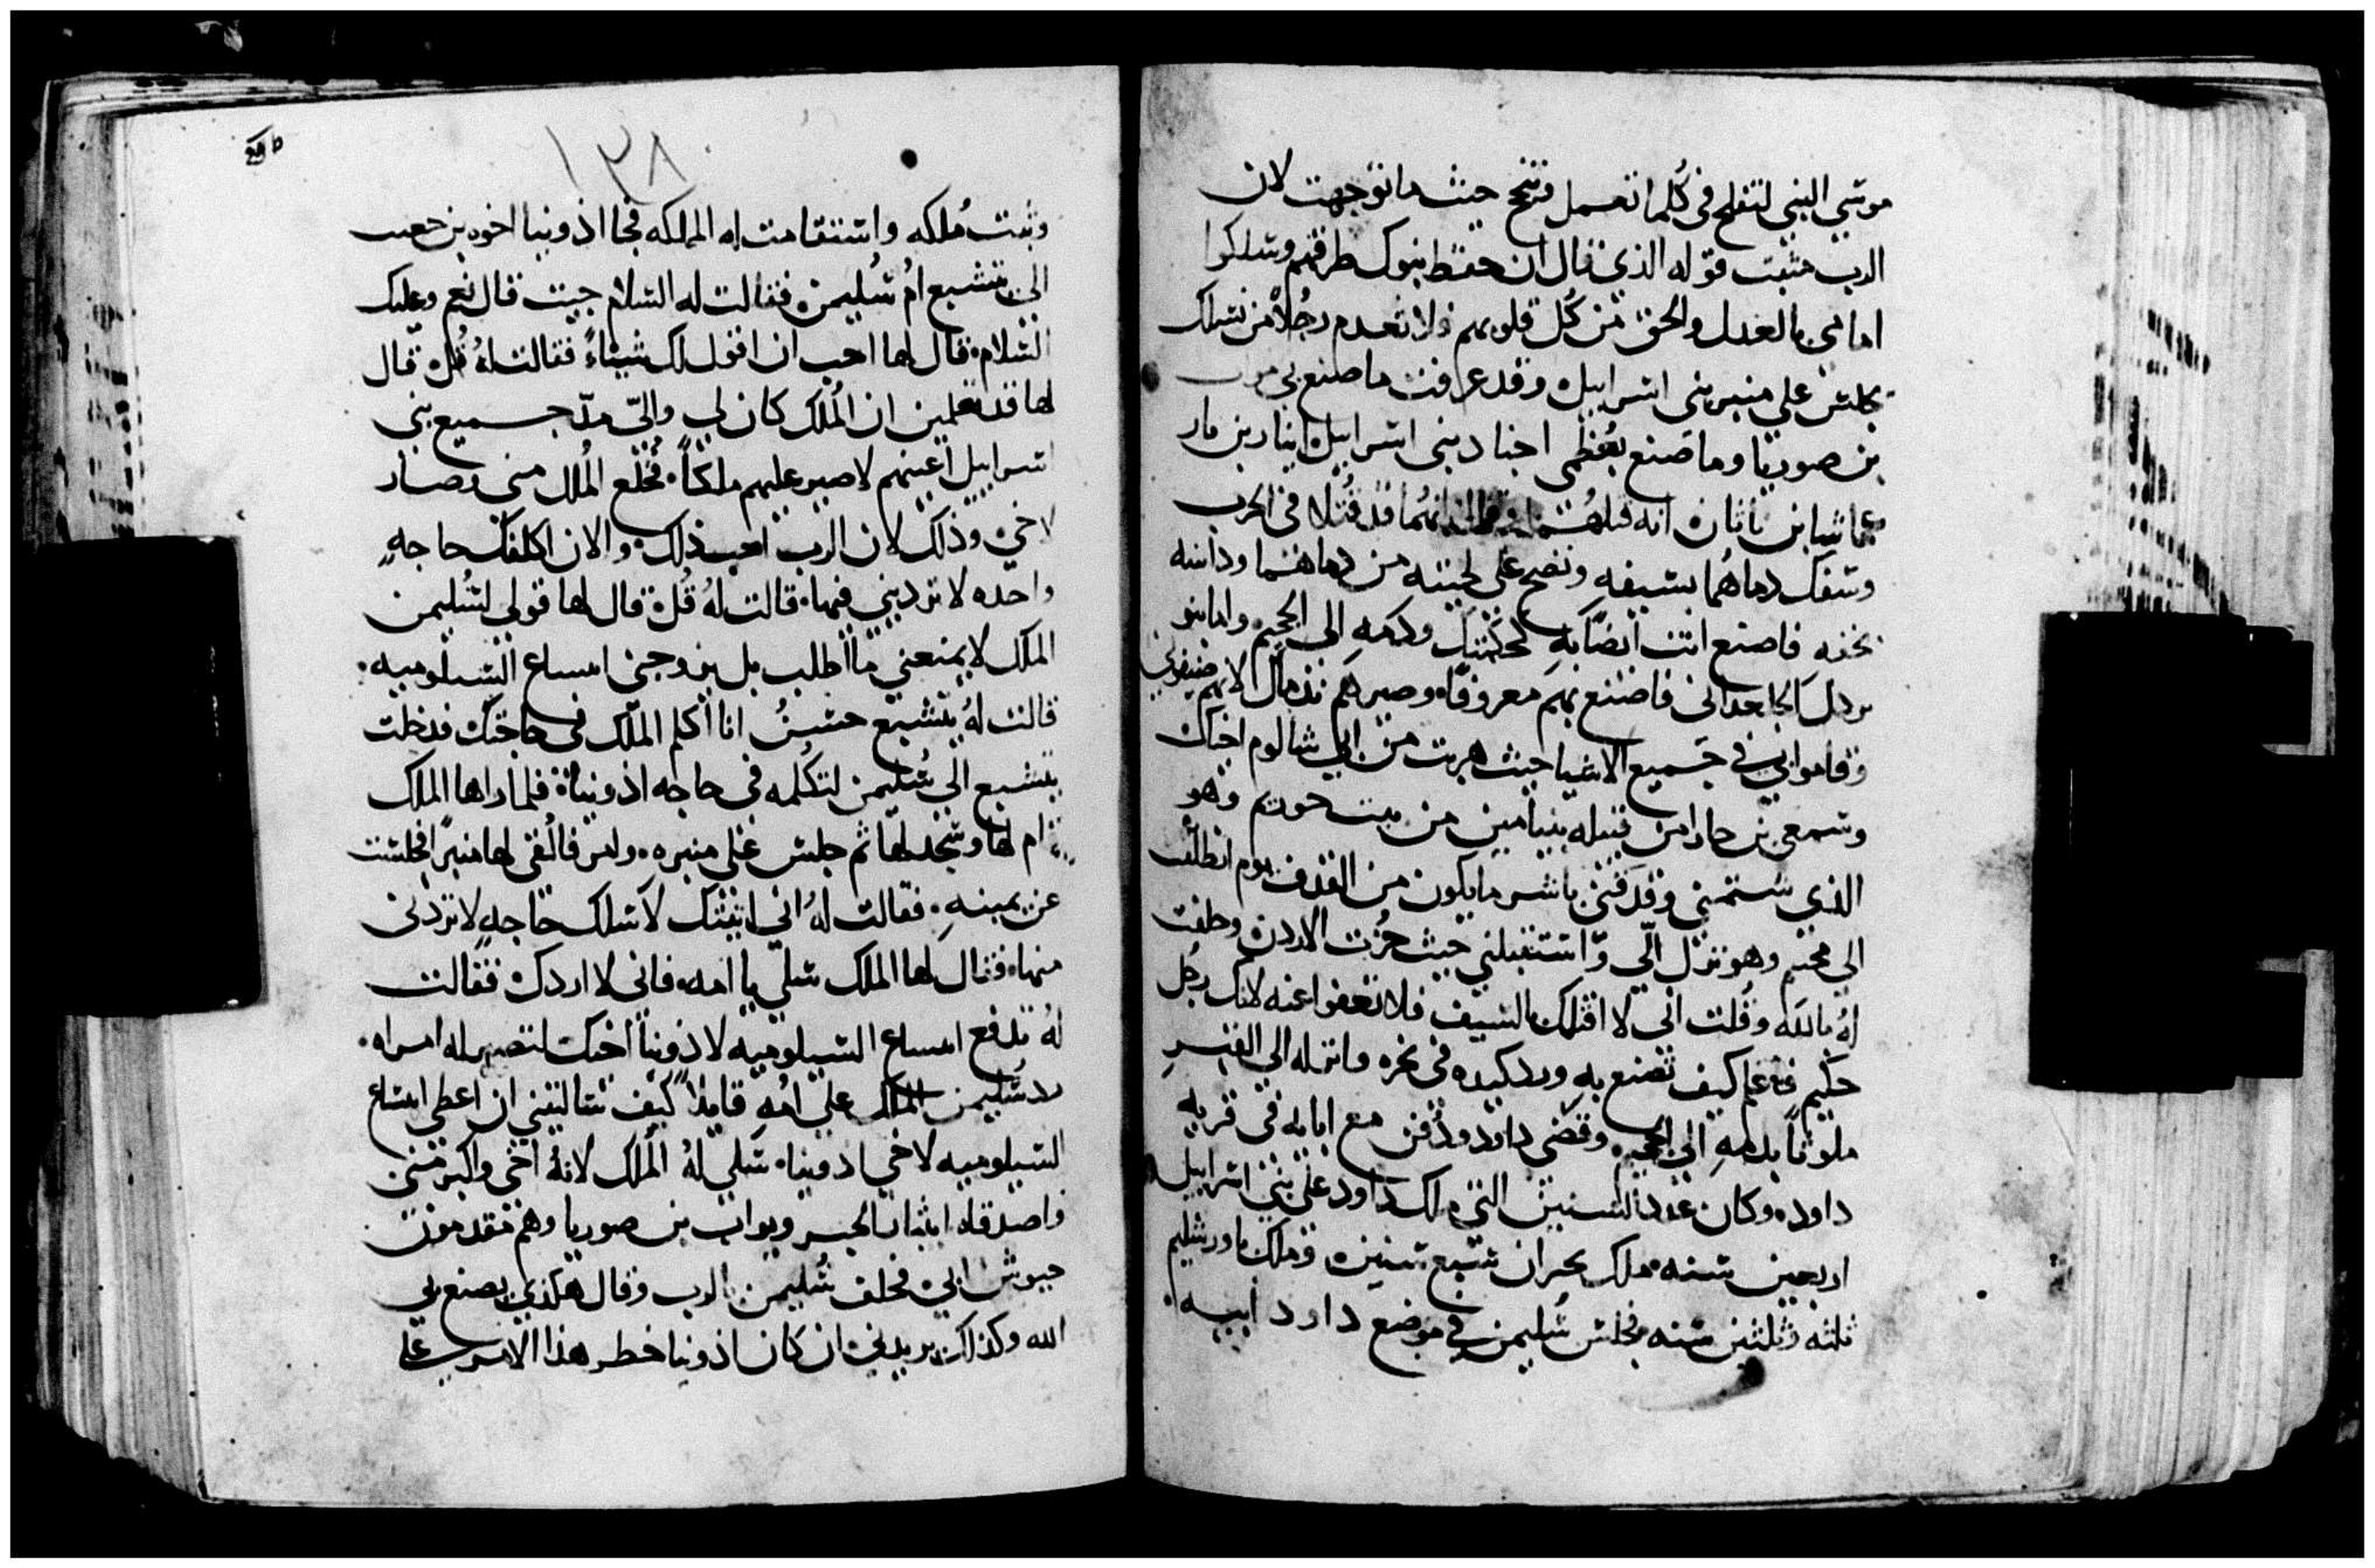 موسي النبي لتفلح في كلما تعمل وتنجح حيث ما توجهت لان
الرب مثبت قوله الذي قال ان حفظ بنوك طرقهم وسلكوا
امامي بالعدل والحق من كل قلوبهم فلا تعدم رجلاً من نسلك
يجلس علي منبر بني اسراييل وقد عرفت ما صنع بي
بن صوريا وما صنع بعظمي اجناد بني اسراييل ابنار بن نار
وعماسا بن ناثان انه قتلهما قد قتلا في الحرب
وسفك دماهما بسيفه ونضح علي لحيته من دماهما وداسه
بخفه فاصنع انت ايضاً به كحكمتك ودمه الي الجحيم واما بنو
برزل الجلعداني فاصنع بهم معروفاً وصيرهم لانهم ضيفوني
وقاموا بي في جميع الاشيا حيث هربت من ابي شالوم اخيك
وسمعي بن حارا من قبيله بنيامين من بيت حوريم وهو
الذي شتمني وقدفني باشر ما يكون من القذف يوم انطلقت
الي محنيم وهو نزل الي واستقبلني حيث جزت الاردن وحلفت
له بالله وقلت اني لا اقتلك بالسيف فلا تعفوا عنه لانك رجل
حكيم فاعلم كيف تصنع به ورد كيده في نحره وانزله الي القبر
ملوثاً بدمه الي الجحيم وقضي داود ودفن مع ابايه في قريه
داود وكان عدد السنين التي ملك داود علي بني اسراييل
اربعين سنه ملك بحبران سبع سنين وملك باورشليم
ثلثه وثلثين سنه فجلس سليمن في موضع داود ابيه
١٣٨
وثبت ملكه واستقامت له المملكه فجا اذونيا اخوه بن حعيت
الي بتشبع ام سليمن فقالت له السلام جيت قال نعم وعليك
السلام قال لها احب ان اقول لك شياءً فقالت له قل قال
لها قد تعلمين ان الملك كان لي والي مد جميع بني
اسراييل اعينهم لاصير عليهم ملكاً فخلع الملك مني وصار
لاخي وذلك لان الرب احب ذلك والان اكلفك حاجه
واحده لا تردّيني فيها قالت له قل قال لها قولي لسليمن
الملك لا يمنعني ما اطلب بل يزوجني امساع السيلوميه
قالت له بتشبع حسن انا اكلم الملك في حاجتك فدخلت
بتشبع الي سليمن لتكلمه في حاجه اذونيا فلما راها الملك
قام لها وسجد لها ثم جلس علي منبره وامر فالقي لها منبراً فجلست
عن يمينه فقالت له اني اتيتك لاسلك حاجه لا تردني
منها فقال لها الملك سلي يا امه فاني لا اردك فقالت
له تدفع امساع السيلوميه لاذونيا اخيك لتصير له امراه
رد سليمن الملك علي امه قايلاً كيف تساليني ان اعطي امساع
السيلوميه لاخي اذونيا سلي له الملك لانه اخي واكبر مني
واصدقاه ابيثار الحبر ويواب بن صوريا وهم متقدمون
جيوش ابي فحلف سليمن بالرب وقال هكذي يصنع بي
الله وكذلك يزيدني ان كان اذونيا خطر هذا الامر علي